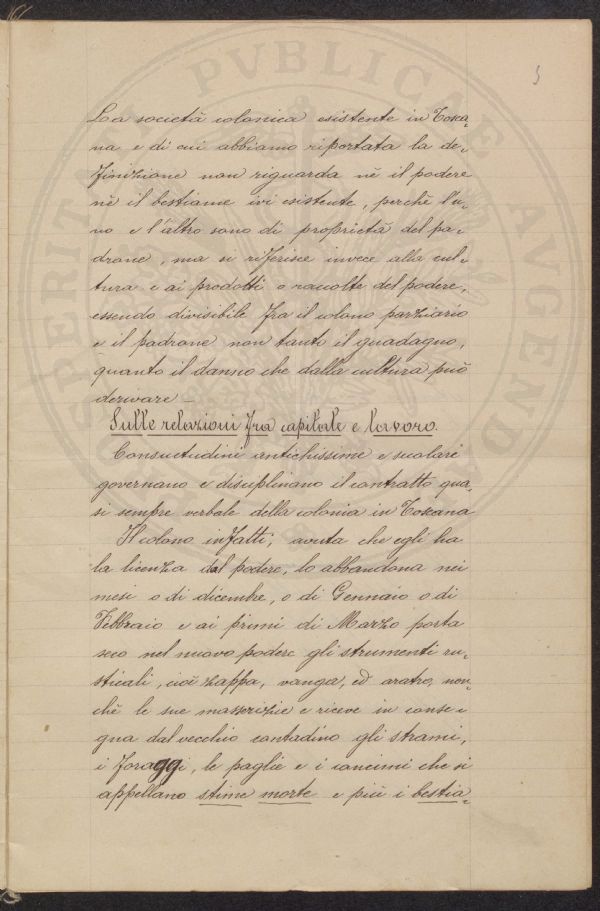 5
La società colonica esistente in Tosca-
na e di cui abbiamo riportata la de-
finizione non riguarda nè il podere
nè il bestiame ivi esistente, perchè l'u-
no e l'altro sono di proprietà del pa-
drone, ma si riferisce invece alla cul-
tura e ai prodotti o raccolte del podere,
essendo divisibile fra il colono parziario
e il padrone non tanto il guadagno,
quanto il danno che dalla cultura può
derivare -
Sulle relazioni fra capitale e lavoro.
Consuetudini antichissime e secolari
governano e disciplinano il contratto qua-
si sempre verbale della colonia in Toscana
Il colono infatti, avuta che egli ha
la licenza dal podere, lo abbandona nei
mesi o di dicembre, o di Gennaio o di
Febbraio e ai primi di Marzo porta
seco nel nuovo podere gli strumenti ru-
sticali, cioè zappa, vanga, ed aratro, non-
chè le sue masserizie e riceve in conse-
gna dal vecchio contadino gli strami,
i foraggi, le paglie e i concimi che si
appellano stime morte e più i bestia-
PROSPERITATI PVBLICAE AVGENDAE